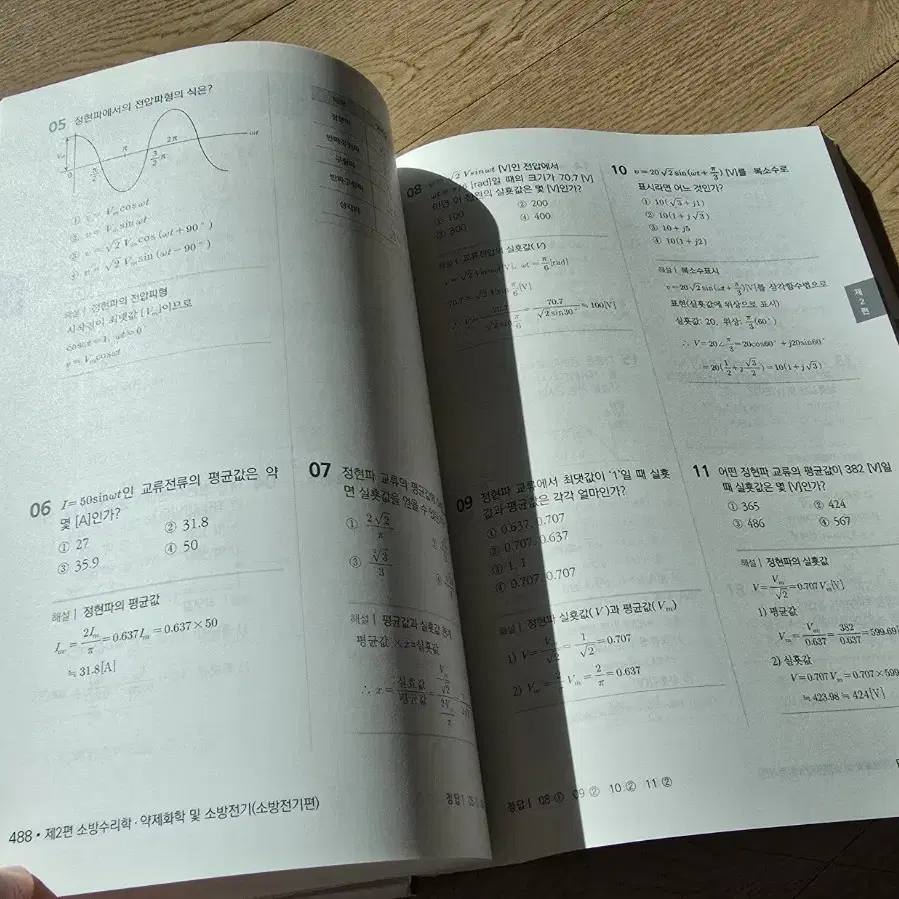 05 정현파에서의 전압파형의 식은?
① v = V_m cosωt
② v = V_m sinωt
③ v = √2 V_m cos (ωt + 90°)
④ v = √2 V_m sin (ωt − 90°)
해설 | 정현파의 전압파형
시작점이 최댓값 [V_m]이므로
v = V_m cosωt
06 I = 50sinωt인 교류전류의 평균값은 약
몇 [A]인가?
① 27 ② 31.8
③ 35.9 ④ 50
해설 | 정현파의 평균값
I_av = 2I_m/π = 0.637I_m = 0.637×50
≒ 31.8[A]
07 정현파 교류의 평균값에
면 실횻값을 얻을 수
① 2√2/π
③
해설 | 평균값과 실횻값 관계
평균값 × x = 실횻값
∴ x = 실효값/평균값 =
정답 |
488 • 제2편 소방수리학·약제화학 및 소방전기(소방전기편)
08 √2 Vsinωt [V]인 전압에서
[rad]일 때의 크기가 70.7 [V]
이면 이 전원의 실횻값은 몇 [V]인가?
① 100 ② 200
③ 300 ④ 400
해설 | 교류전압의 실횻값(V)
v = √2 Vsinωt[V], ωt = π/6[rad]
70.7 = √2 V sin π/6 [V]
∴ V = 70.7/(√2 sin π/6) = 70.7/(√2 sin30°) ≒ 100[V]
09 정현파 교류에서 최댓값이 '1'일 때 실횻
값과 평균값은 각각 얼마인가?
① 0.637, 0.707
② 0.707, 0.637
③ 1, 1
④ 0.707, 0.707
해설 | 정현파 실횻값(V)과 평균값(V_m)
1) V = V_m/√2 = 1/√2 = 0.707
2) V_m = 2/π V_m = 2/π = 0.637
10 v = 20√2 sin(ωt + π/3) [V]를 복소수로
표시라면 어느 것인가?
① 10(√3 + j1)
② 10(1 + j√3)
③ 10 + j5
④ 10(1 + j2)
해설 | 복소수표시
v = 20√2 sin(ωt + π/3)[V]를 삼각함수변으로
표현(실횻값에 위상으로 표시)
실횻값: 20, 위상: π/3(60°)
∴ V = 20∠π/3 = 20cos60° + j20sin60°
= 20(1/2 + j√3/2) = 10(1 + j√3)
제2편
11 어떤 정현파 교류의 평균값이 382 [V]일
때 실횻값은 몇 [V]인가?
① 365 ② 424
③ 486 ④ 567
해설 | 정현파의 실횻값
V = V_m/√2 = 0.707 V_m[V]
1) 평균값
V_m = V_m/0.637 = 382/0.637 = 599.69[
2) 실횻값
V = 0.707 V_m = 0.707×599
≒ 423.98 ≒ 424[V]
정답 | 08 ① 09 ② 10 ② 11 ②